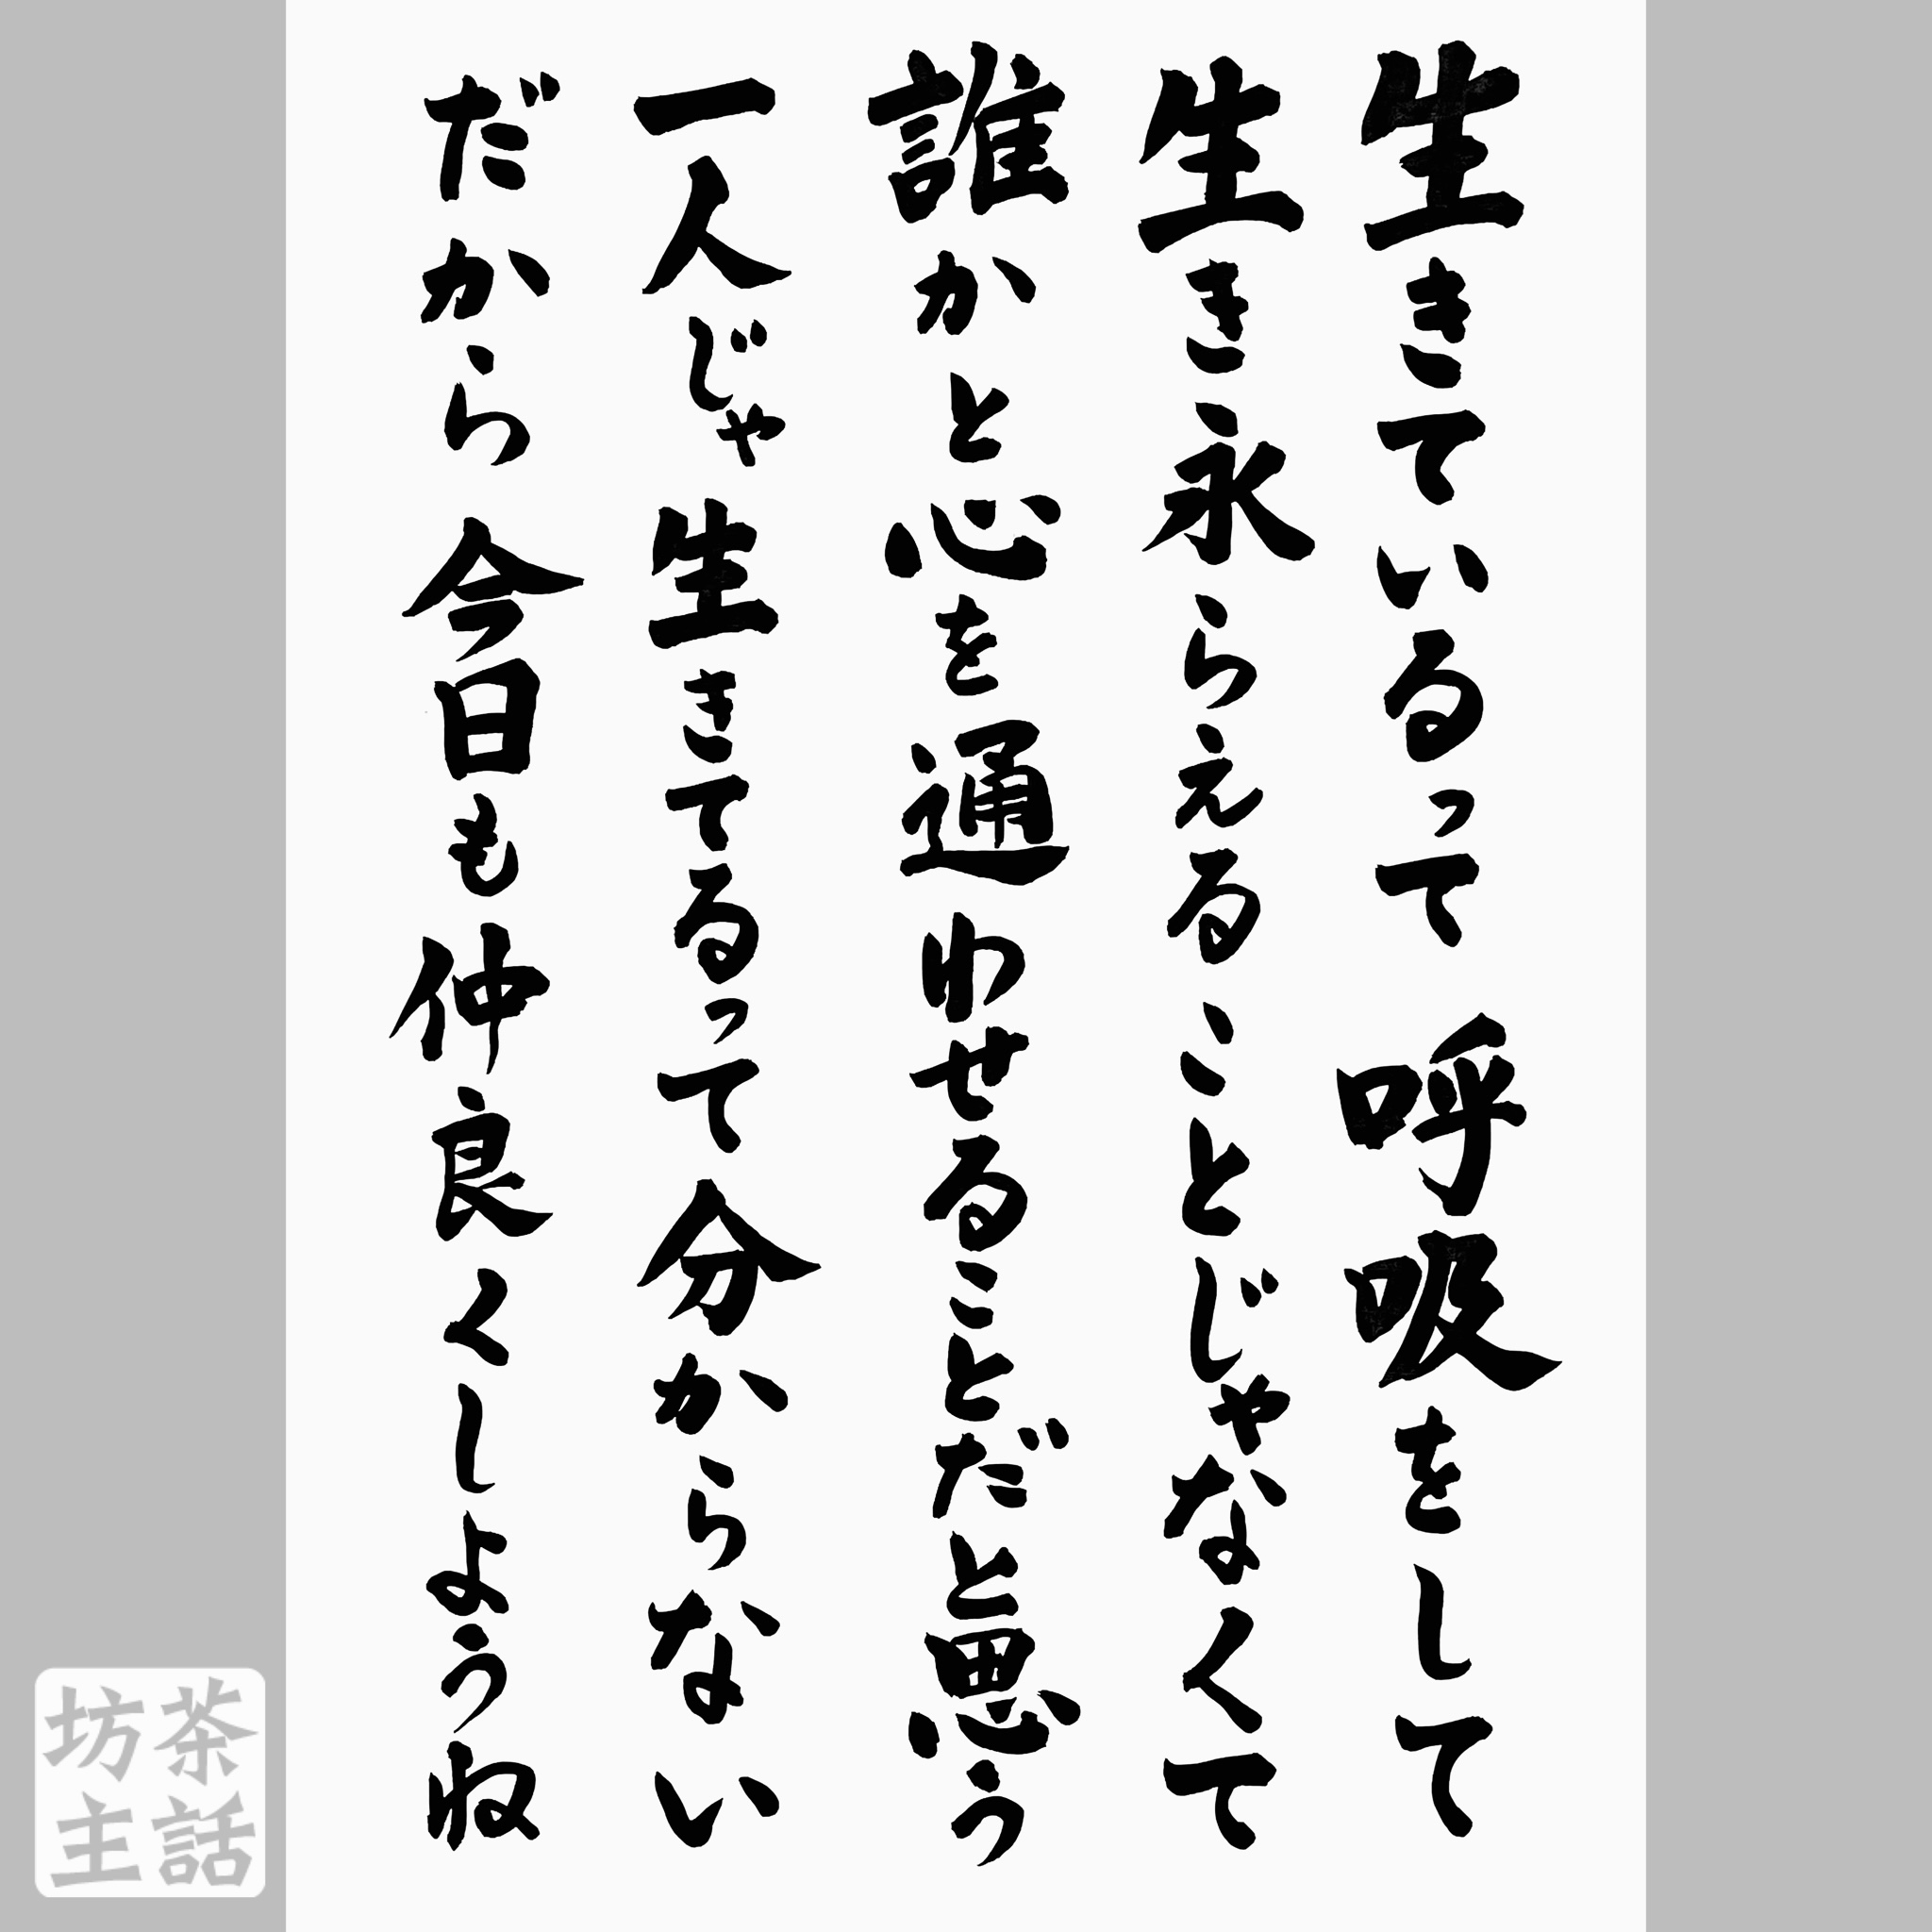 生きているって 呼吸をして
生き永らえることじゃなくて
誰かと心を通わせることだと思う
一人じゃ生きてるって分からない
だから今日も仲良くしようね
茶話
坊主